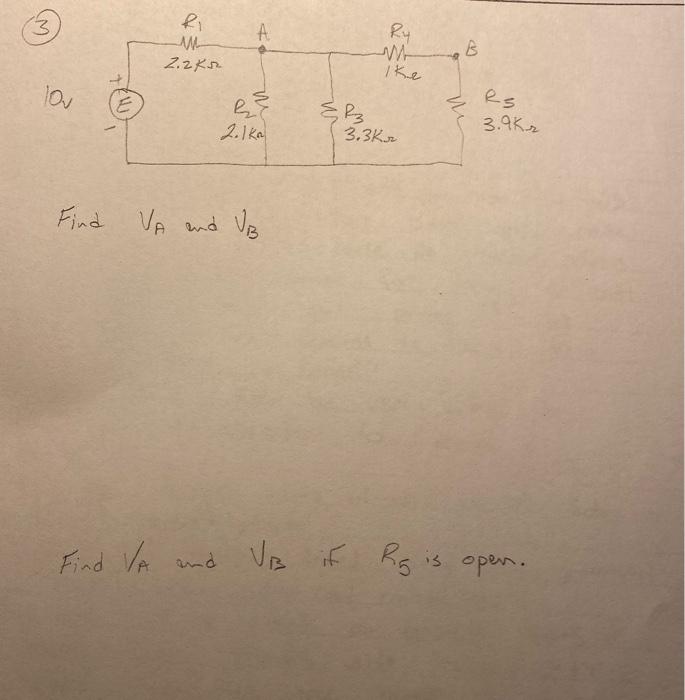 3
R1
A
R4
B
2.2KΩ
1KΩ
10v
+
E
-
R2
2.1KΩ
R3
3.3KΩ
R5
3.9KΩ
Find VA and VB
Find VA and VB if R5 is open.